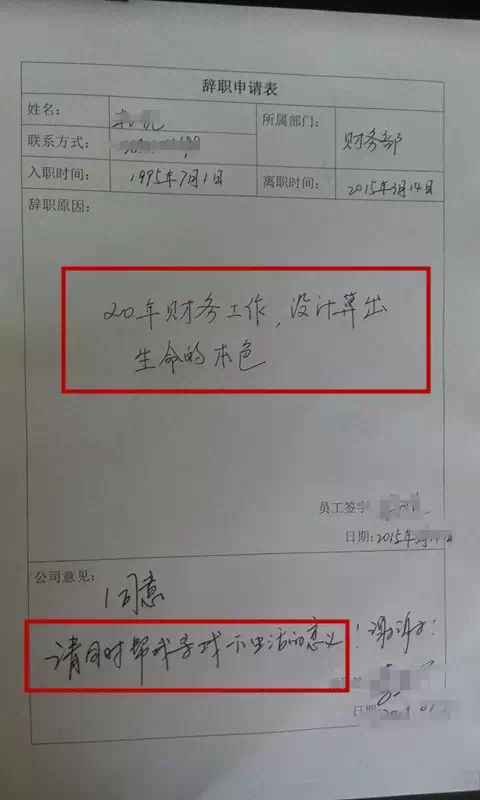 辞职申请表
姓名:
所属部门: 财务部
联系方式:
入职时间: 1995年7月1日 离职时间: 2015年3月14日
辞职原因:
20年财务工作,没计算出
生命的本色
员工签字
日期:2015年
公司意见: 同意
请同时帮我寻找一下生活的意义!谢谢!
日期